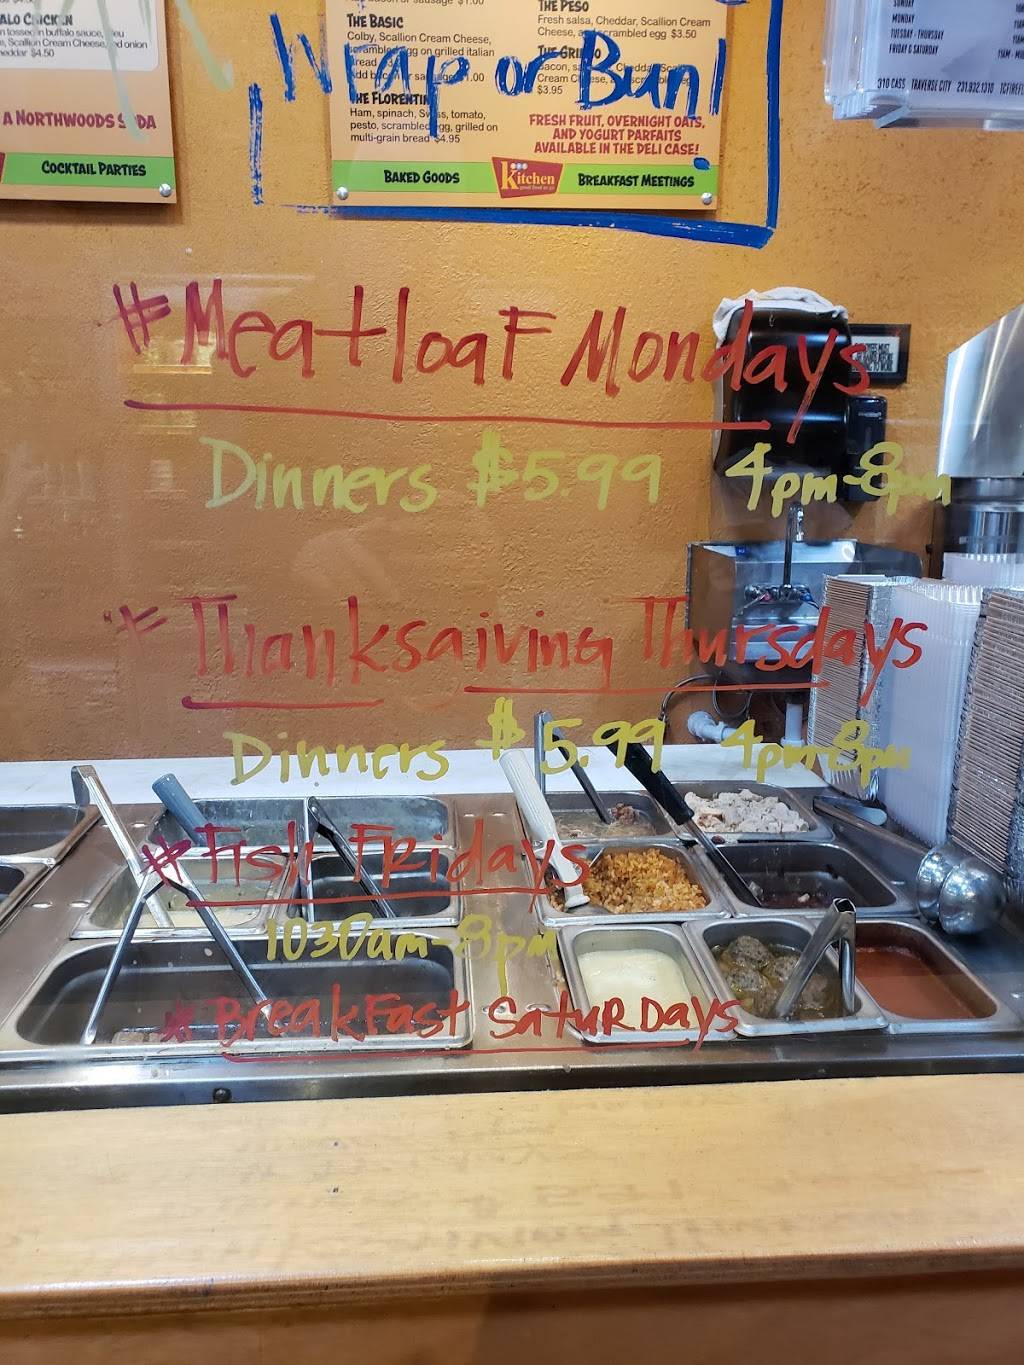 $1.00
ALO CHICKEN
en tossed in buffalo sauce,
Scallion Cream Cheese, red onion
heddar $4.50
A NORTHWOODS SODA
COCKTAIL PARTIES
THE BASIC
Colby, Scallion Cream Cheese,
scrambled egg on grilled italian
bread
Add bacon or sausage $1.00
THE FLORENTINE
Ham, spinach, Swiss, tomato,
pesto, scrambled egg, grilled on
multi-grain bread $4.95
THE PESO
Fresh salsa, Cheddar, Scallion Cream
Cheese, scrambled egg $3.50
THE GRINGO
Bacon, salsa, Cheddar, Scallion
Cream Cheese, egg
$3.95
FRESH FRUIT, OVERNIGHT OATS,
AND YOGURT PARFAITS
AVAILABLE IN THE DELI CASE!
BAKED GOODS
Kitchen
BREAKFAST MEETINGS
Wrap or Bun!
SUNDAY
MONDAY
TUESDAY - THURSDAY
FRIDAY & SATURDAY
310 CASS TRAVERSE CITY 231.932.1310
#Meatloaf Mondays
Dinners $5.99 4pm-8pm
* Thanksgiving Thursdays
Dinners $5.99 4pm-8pm
#Fish Fridays
1030am-8pm
* Breakfast Saturdays